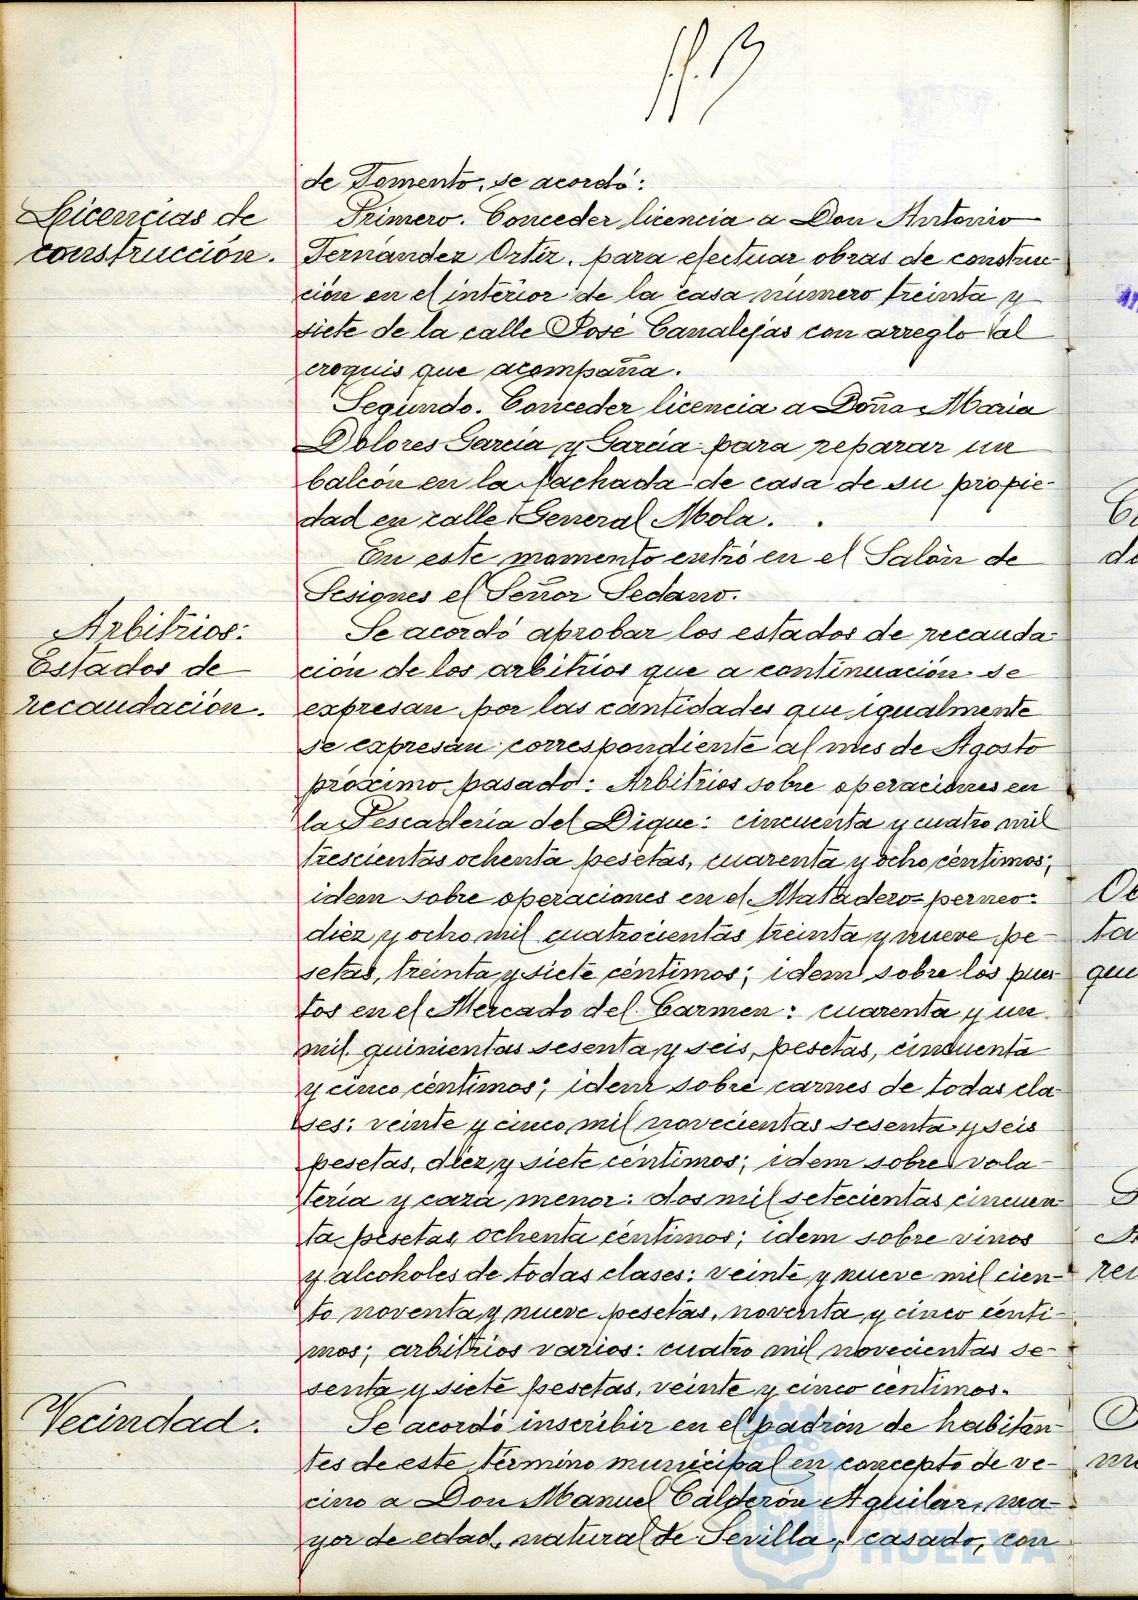 de Fomento, se acordó:
Licencias de
construcción.
Primero. Conceder licencia a Don Antonio
Fernández Ortiz, para efectuar obras de construc-
ción en el interior de la casa número treinta y
siete de la calle José Canalejas con arreglo al
croquis que acompaña.
Segundo. Conceder licencia a Doña Maria
Dolores García y García para reparar un
balcón en la fachada de casa de su propie-
dad en calle General Mola.
En este momento entró en el Salón de
Sesiones el Señor Sedano.
Arbitrios:
Estados de
recaudación.
Se acordó aprobar los estados de recauda-
ción de los arbitrios que a continuación se
expresan por las cantidades que igualmente
se expresan correspondiente al mes de Agosto
próximo pasado: Arbitrios sobre operaciones en
la Pescadería del Dique: cincuenta y cuatro mil
trescientas ochenta pesetas, cuarenta y ocho céntimos;
idem sobre operaciones en el Matadero= perneo:
diez y ocho mil cuatrocientas treinta y nueve pe-
setas, treinta y siete céntimos; idem sobre los pues-
tos en el Mercado del Carmen: cuarenta y un
mil quinientas sesenta y seis pesetas, cincuenta
y cinco céntimos; idem sobre carnes de todas cla-
ses: veinte y cinco mil novecientas sesenta y seis
pesetas, diez y siete céntimos; idem sobre vola-
tería y caza menor: dos mil setecientas cincuen-
ta pesetas ochenta céntimos; idem sobre vinos
y alcoholes de todas clases: veinte y nueve mil cien-
to noventa y nueve pesetas, noventa y cinco cénti-
mos; arbitrios varios: cuatro mil novecientas se-
senta y siete pesetas, veinte y cinco céntimos.
Vecindad.
Se acordó inscribir en el padrón de habitan-
tes de este término municipal en concepto de ve-
cino a Don Manuel Calderón Aguilar, ma-
yor de edad, natural de Sevilla, casado, con
Ayuntamiento de
HUELVA